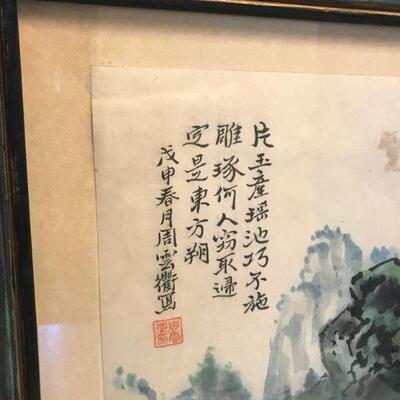 片玉產瑤池巧不施
雕琢何人窃取遞
定是東方朔
戊申春月周雲衢寫